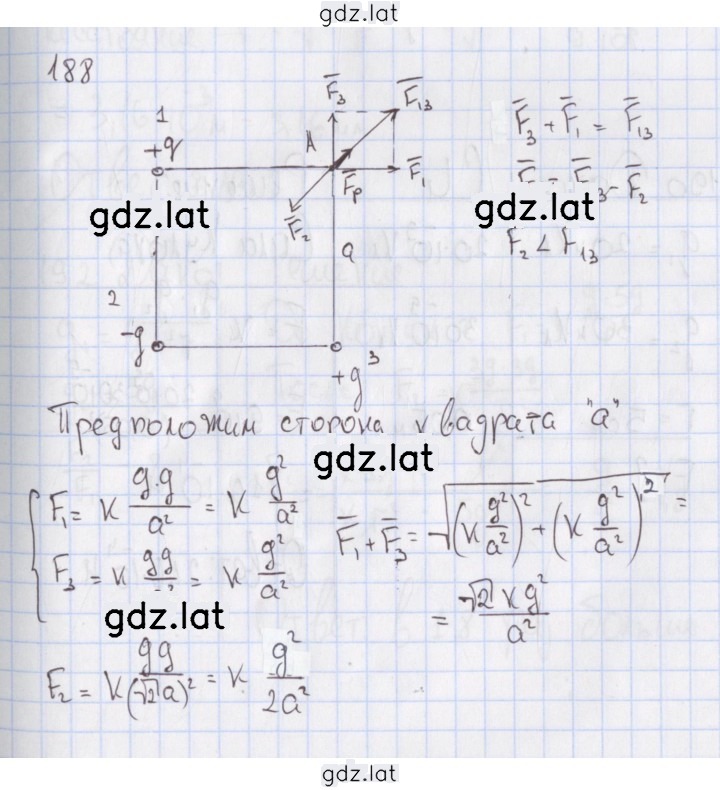 gdz.lat
188
1
+q
A
F̅₃
F̅₁₃
F̅₁
F̅ₚ
F̅₂
a
2
-g
3
+g
F̅₃ + F̅₁ = F̅₁₃
gdz.lat
gdz.lat
F₂ < F₁₃
Предположим сторона квадрата "a"
gdz.lat
F₁ = K g·g/a² = K g²/a²
F₃ = K gg/a² = K g²/a²
F̅₁ + F̅₃ = √((K g²/a²)² + (K g²/a²)²) =
= √2 K g²/a²
gdz.lat
F₂ = K gg/(√2 a)² = K g²/2a²
gdz.lat